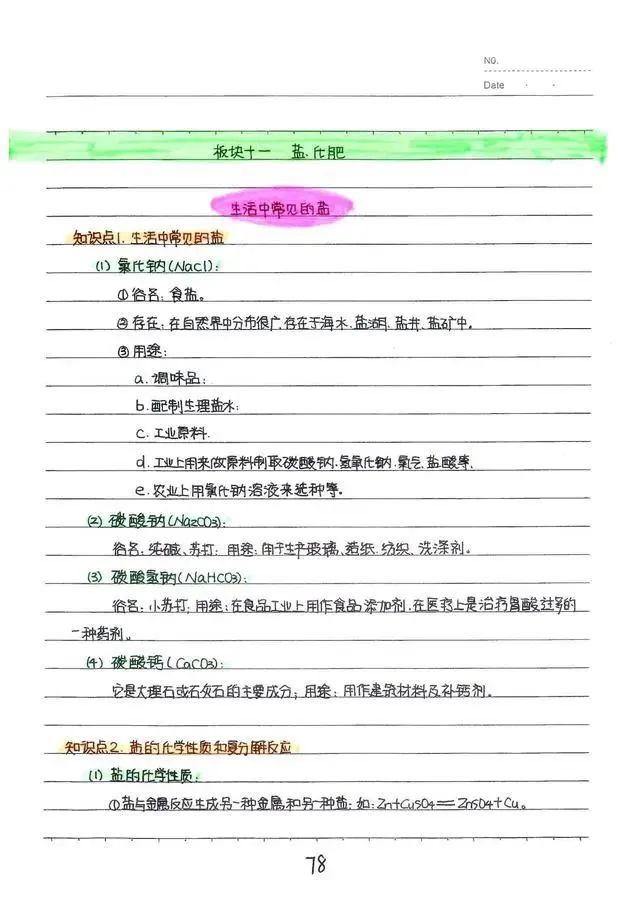 NO.
Date · ·
板块十一 盐、化肥
生活中常见的盐
知识点1. 生活中常见的盐
(1) 氯化钠(NaCl):
①俗名: 食盐。
②存在: 在自然界中分布很广,存在于海水、盐湖、盐井、盐矿中。
③用途:
a. 调味品;
b. 配制生理盐水;
c. 工业原料.
d. 工业上用来做原料制取碳酸钠、氢氧化钠、氯气、盐酸等.
e. 农业上用氯化钠溶液来选种等。
(2) 碳酸钠(Na2CO3):
俗名: 纯碱、苏打; 用途: 用于生产玻璃、造纸、纺织、洗涤剂。
(3) 碳酸氢钠(NaHCO3):
俗名: 小苏打, 用途: 在食品工业上用作食品添加剂. 在医疗上是治疗胃酸过多的
一种药剂。
(4) 碳酸钙(CaCO3):
它是大理石或石灰石的主要成分; 用途: 用作建筑材料及补钙剂。
知识点2. 盐的化学性质和复分解反应
(1) 盐的化学性质:
①盐与金属反应生成另一种金属和另一种盐; 如: Zn+CuSO4==ZnSO4+Cu。
78